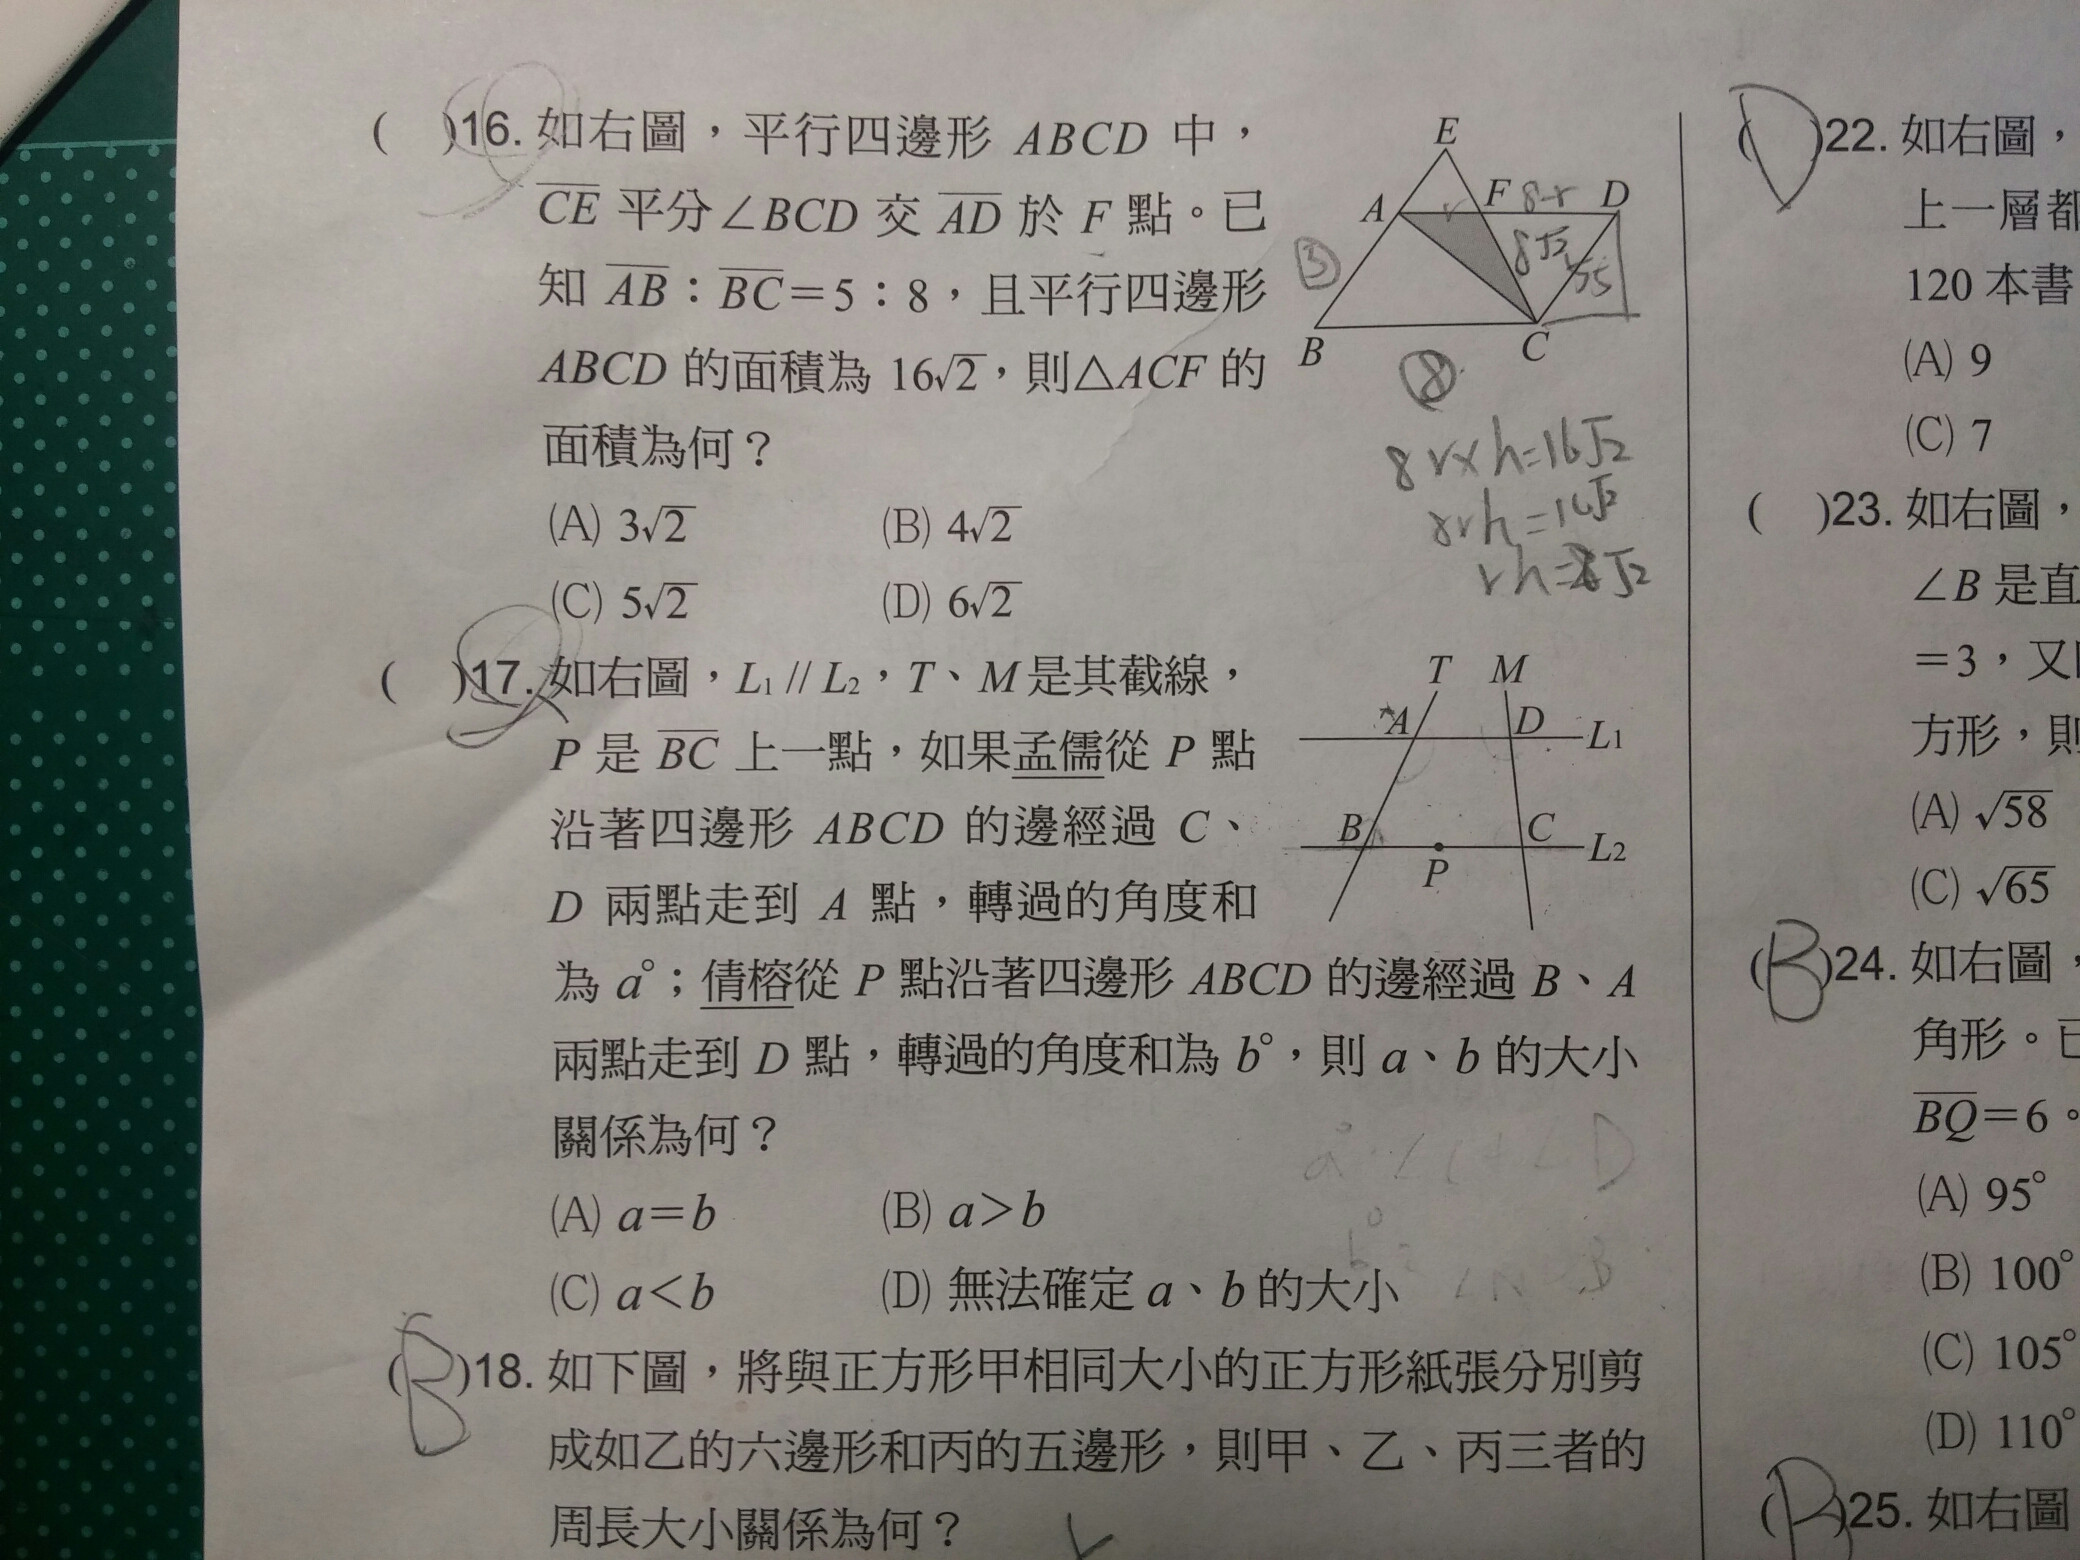 ( )16. 如右圖，平行四邊形 ABCD 中，
CE 平分∠BCD 交 AD 於 F 點。已
知 AB：BC＝5：8，且平行四邊形
ABCD 的面積為 16√2，則△ACF 的
面積為何？
(A) 3√2 (B) 4√2
(C) 5√2 (D) 6√2
E
A r F 8-r D
8√2
5
B C
8
8r×h=16√2
8rh=16√2
( )17. 如右圖，L1 // L2，T、M是其截線，
P 是 BC 上一點，如果孟儒從 P 點
沿著四邊形 ABCD 的邊經過 C、
D 兩點走到 A 點，轉過的角度和
為 a°；倩榕從 P 點沿著四邊形 ABCD 的邊經過 B、A
兩點走到 D 點，轉過的角度和為 b°，則 a、b 的大小
關係為何？
(A) a＝b (B) a＞b
(C) a＜b (D) 無法確定 a、b 的大小
T M
A D L1
B C L2
P
(B)18. 如下圖，將與正方形甲相同大小的正方形紙張分別剪
成如乙的六邊形和丙的五邊形，則甲、乙、丙三者的
周長大小關係為何？
(D)22. 如右圖，
上一層都
120 本書
(A) 9
(C) 7
( )23. 如右圖，
∠B 是直
＝3，又
方形，則
(A) √58
(C) √65
(B)24. 如右圖，
角形。已
BQ＝6。
(A) 95°
(B) 100°
(C) 105°
(D) 110°
(B)25. 如右圖